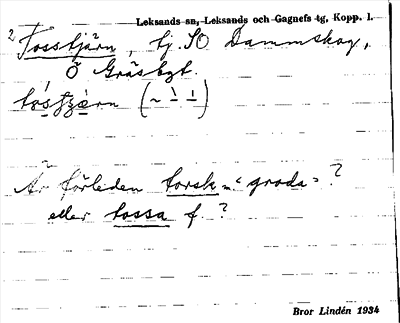 Leksands sn, Leksands och Gagnefs tg, Kopp. l.
2 Tosstjärn, tj. SO Dammskog,
Ö Gräsbgt.
Är förleden torsk = "groda"?
eller tossa f.?
Bror Lindén 1934